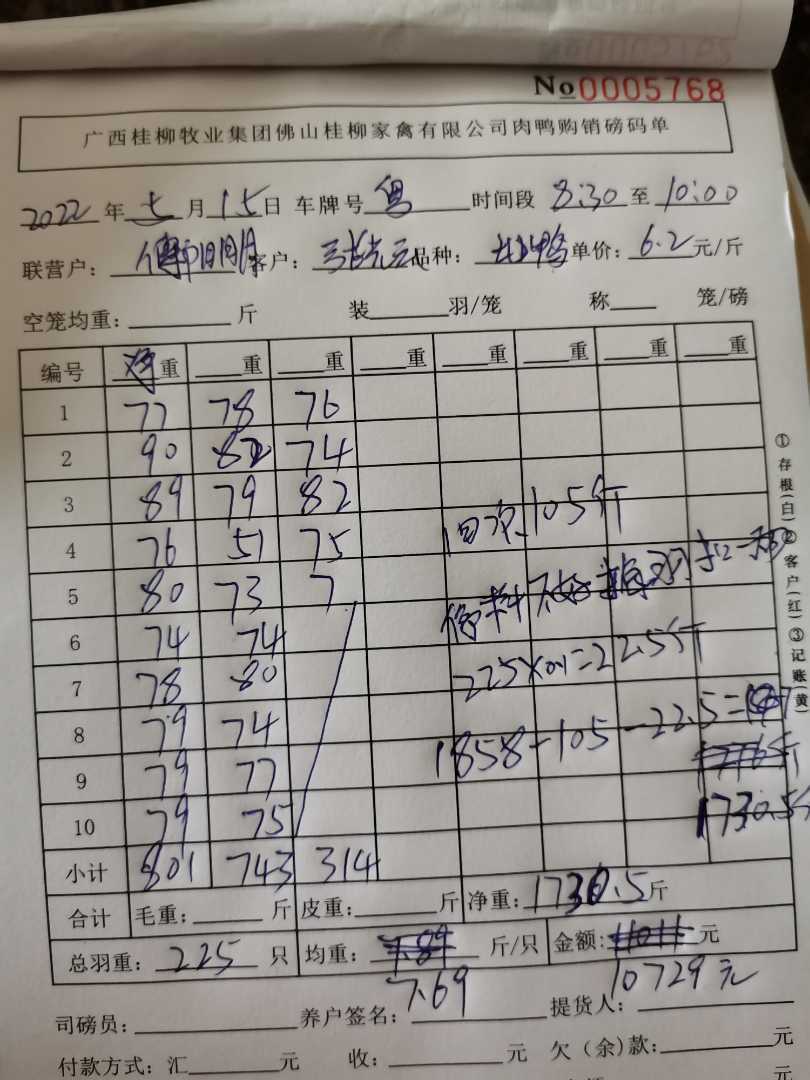 No 0005768
广西桂柳牧业集团佛山桂柳家禽有限公司肉鸭购销磅码单
2022年七月15日 车牌号 粤 时间段 8:30 至 10:00
联营户： 客户： 品种： 单价：6.2元/斤
空笼均重： 斤 装 羽/笼 称 笼/磅
编号 重 重 重 重 重 重 重 重
1 77 78 76
2 90 82 74
3 89 79 82
4 76 51 75
5 80 73 7
6 74 74
7 78 80
8 79 74
9 79 77
10 79 75
105斤
225×0.1=22.5斤
1858-105-22.5=
1730.5斤
小计 801 743 314
合计 毛重： 斤 皮重： 斤 净重：1730.5斤
总羽重：225只 均重： 斤/只 金额： 元
7.69 10729元
司磅员： 养户签名： 提货人：
付款方式：汇 元 收： 元 欠（余）款： 元
元
①存根(白)②客户(红)③记账(黄)